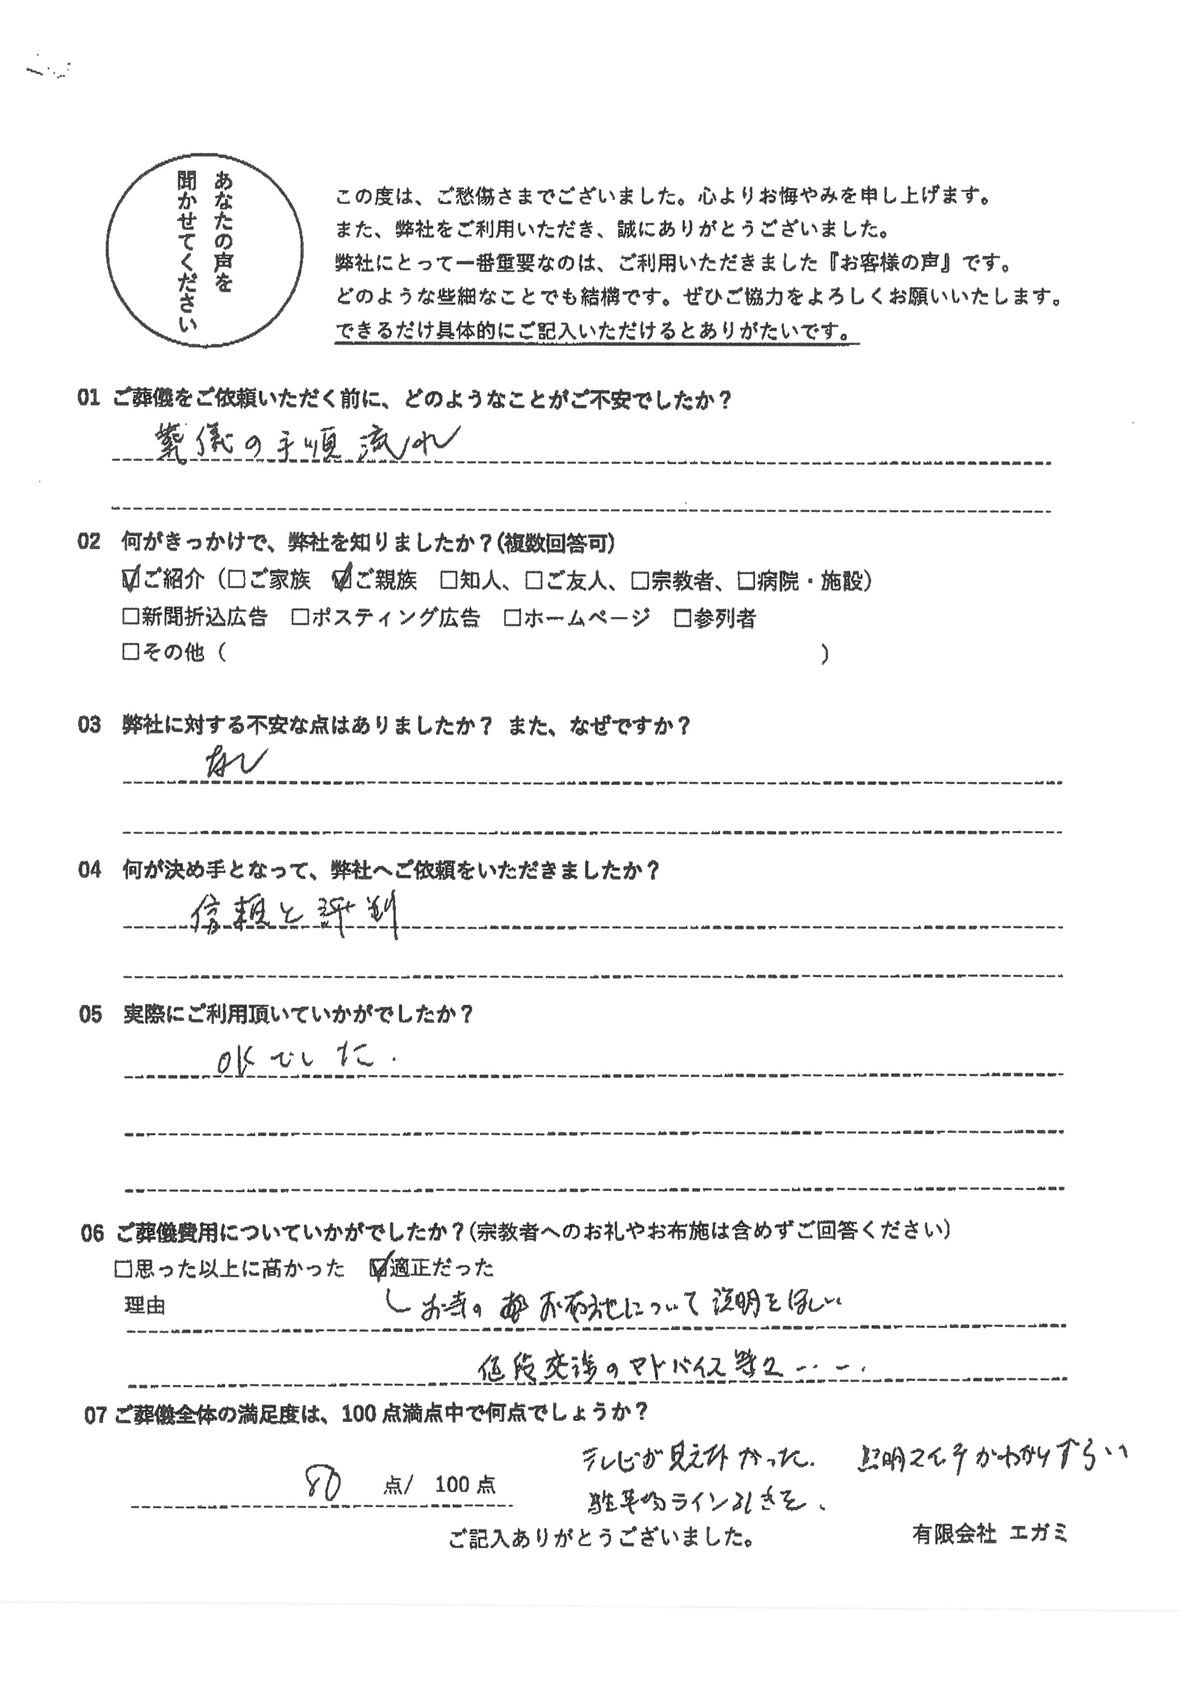 あなたの声を
聞かせてください
この度は、ご愁傷さまでございました。心よりお悔やみを申し上げます。
また、弊社をご利用いただき、誠にありがとうございました。
弊社にとって一番重要なのは、ご利用いただきました『お客様の声』です。
どのような些細なことでも結構です。ぜひご協力をよろしくお願いいたします。
できるだけ具体的にご記入いただけるとありがたいです。
01 ご葬儀をご依頼いただく前に、どのようなことがご不安でしたか？
葬儀の手順 流れ
02 何がきっかけで、弊社を知りましたか？(複数回答可)
☑ご紹介（□ご家族 ☑ご親族 □知人、□ご友人、□宗教者、□病院・施設）
□新聞折込広告 □ポスティング広告 □ホームページ □参列者
□その他（ ）
03 弊社に対する不安な点はありましたか？ また、なぜですか？
なし
04 何が決め手となって、弊社へご依頼をいただきましたか？
信頼と評判
05 実際にご利用頂いていかがでしたか？
OKでした.
06 ご葬儀費用についていかがでしたか？(宗教者へのお礼やお布施は含めずご回答ください)
□思った以上に高かった ☑適正だった
理由 お寺の お布施について説明をほしい
値段交渉のアドバイス等々・・・・.
07 ご葬儀全体の満足度は、100点満点中で何点でしょうか？
テレビが見えなかった. 照明スイッチがわかりずらい
80 点/ 100点
駐車場ライン引きを、
ご記入ありがとうございました。
有限会社 エガミ